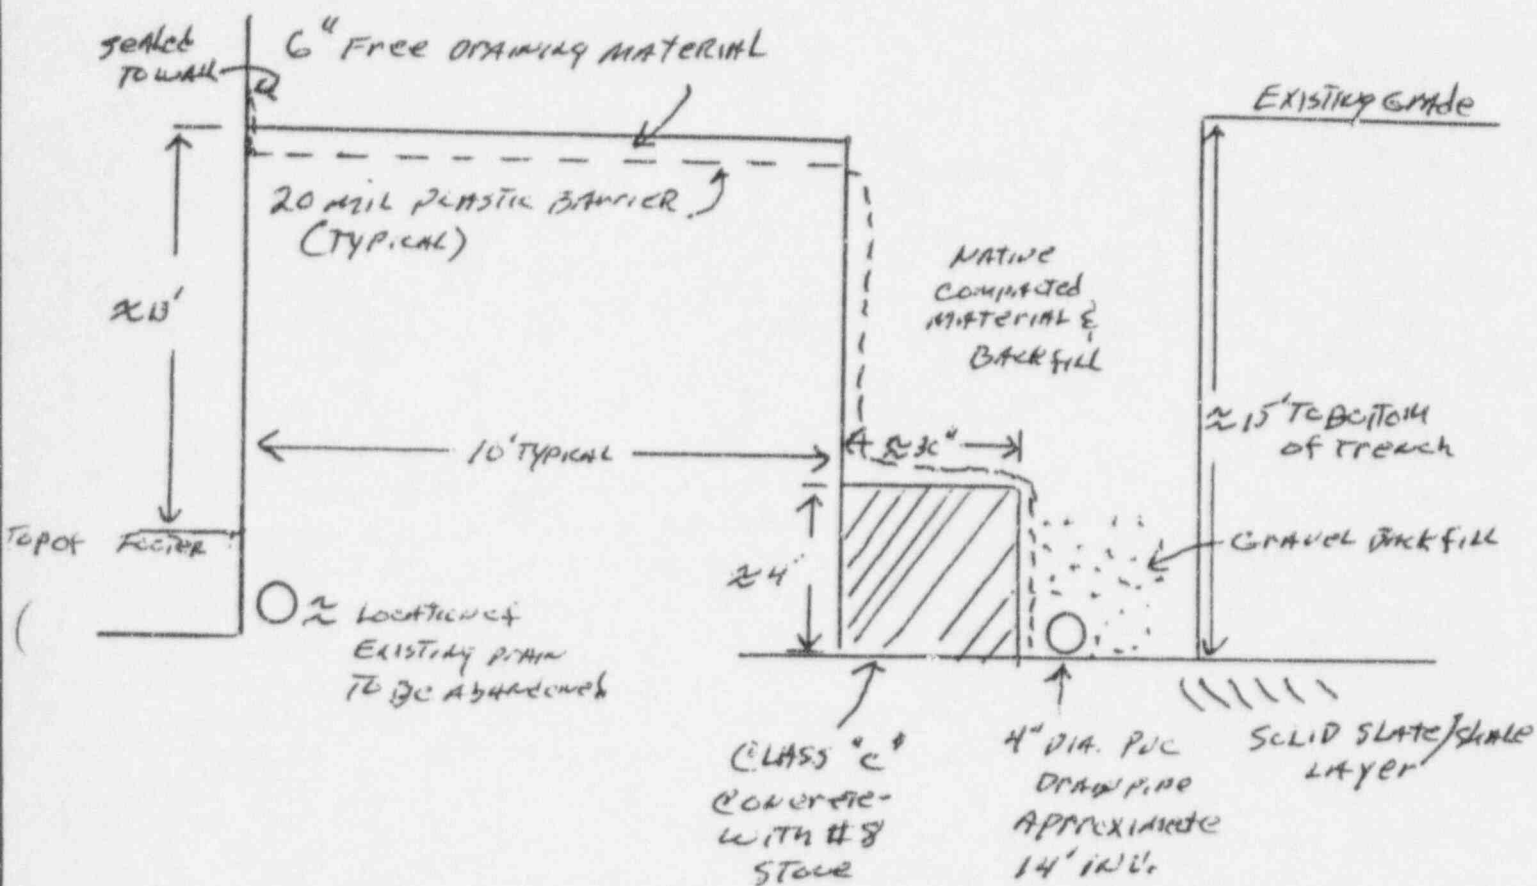 SEALED
TO WALL
6" FREE DRAINING MATERIAL
EXISTING GRADE
20 MIL PLASTIC BARRIER
(TYPICAL)
NATIVE
COMPACTED
MATERIAL &
BACKFILL
≈ 15' TO BOTTOM
OF TRENCH
10' TYPICAL
TOP OF FOOTER
GRAVEL BACKFILL
≈ 4'
≈ LOCATION OF
EXISTING DRAIN
TO BE ABANDONED
CLASS "C"
CONCRETE-
WITH #8
STONE
4" DIA. PVC
DRAIN PIPE
APPROXIMATE
14' INV.
SOLID SLATE/SHALE
LAYER